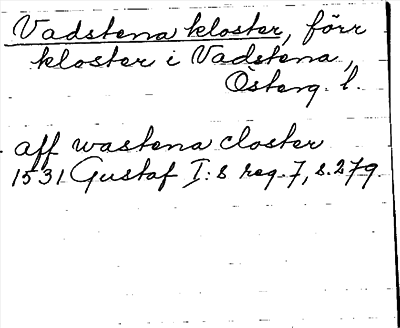 Vadstena kloster, förr
kloster i Vadstena,
Österg. l.
aff wastena closter
1531 Gustaf I:s reg. 7, s. 279.